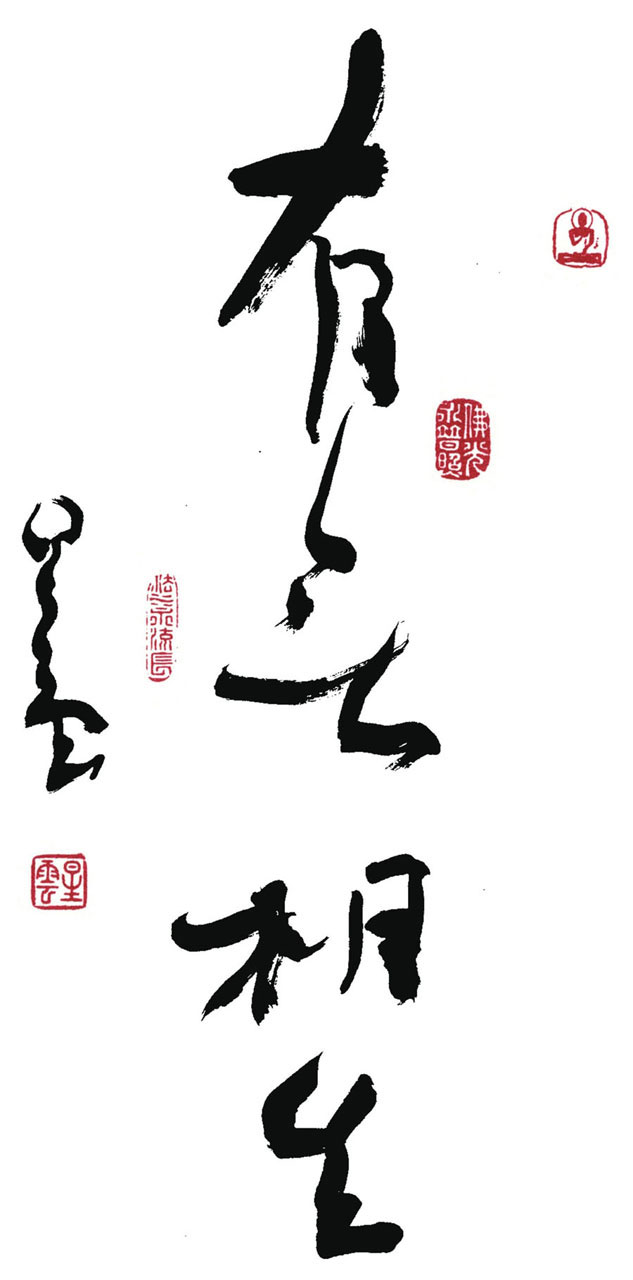 佛光永普照
有無相生
法水永流長
星雲
星雲